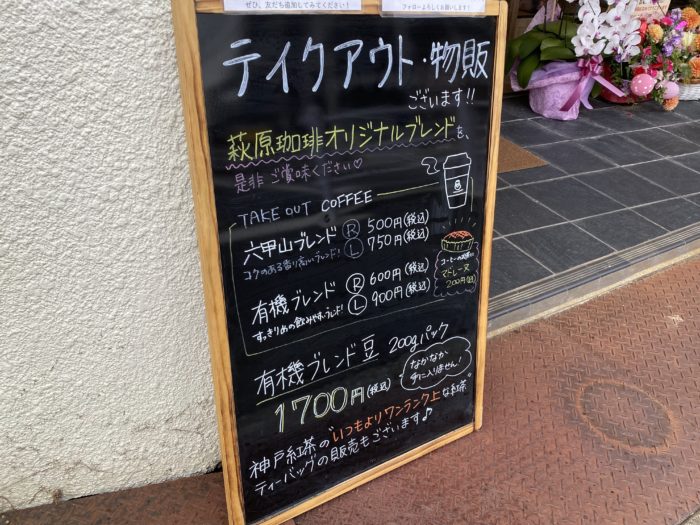 ぜひ、友だち追加してみてください!
フォローよろしくお願いします!
テイクアウト・物販
ございます!!
萩原珈琲オリジナルブレンドを、
是非ご賞味ください♡
TAKE OUT COFFEE
六甲山ブレンド Ⓡ 500円(税込)
コクのある香り高いブレンド! Ⓛ 750円(税込)
有機ブレンド Ⓡ 600円(税込)
すっきりめの飲みやすいブレンド! Ⓛ 900円(税込)
コーヒーのお供に
マドレーヌ
200円(税込)
有機ブレンド豆 200gパック
1700円(税込)
なかなか
手に入りません!
神戸紅茶の"いつもよりワンランク上な紅茶"
ティーバッグの販売もございます♪